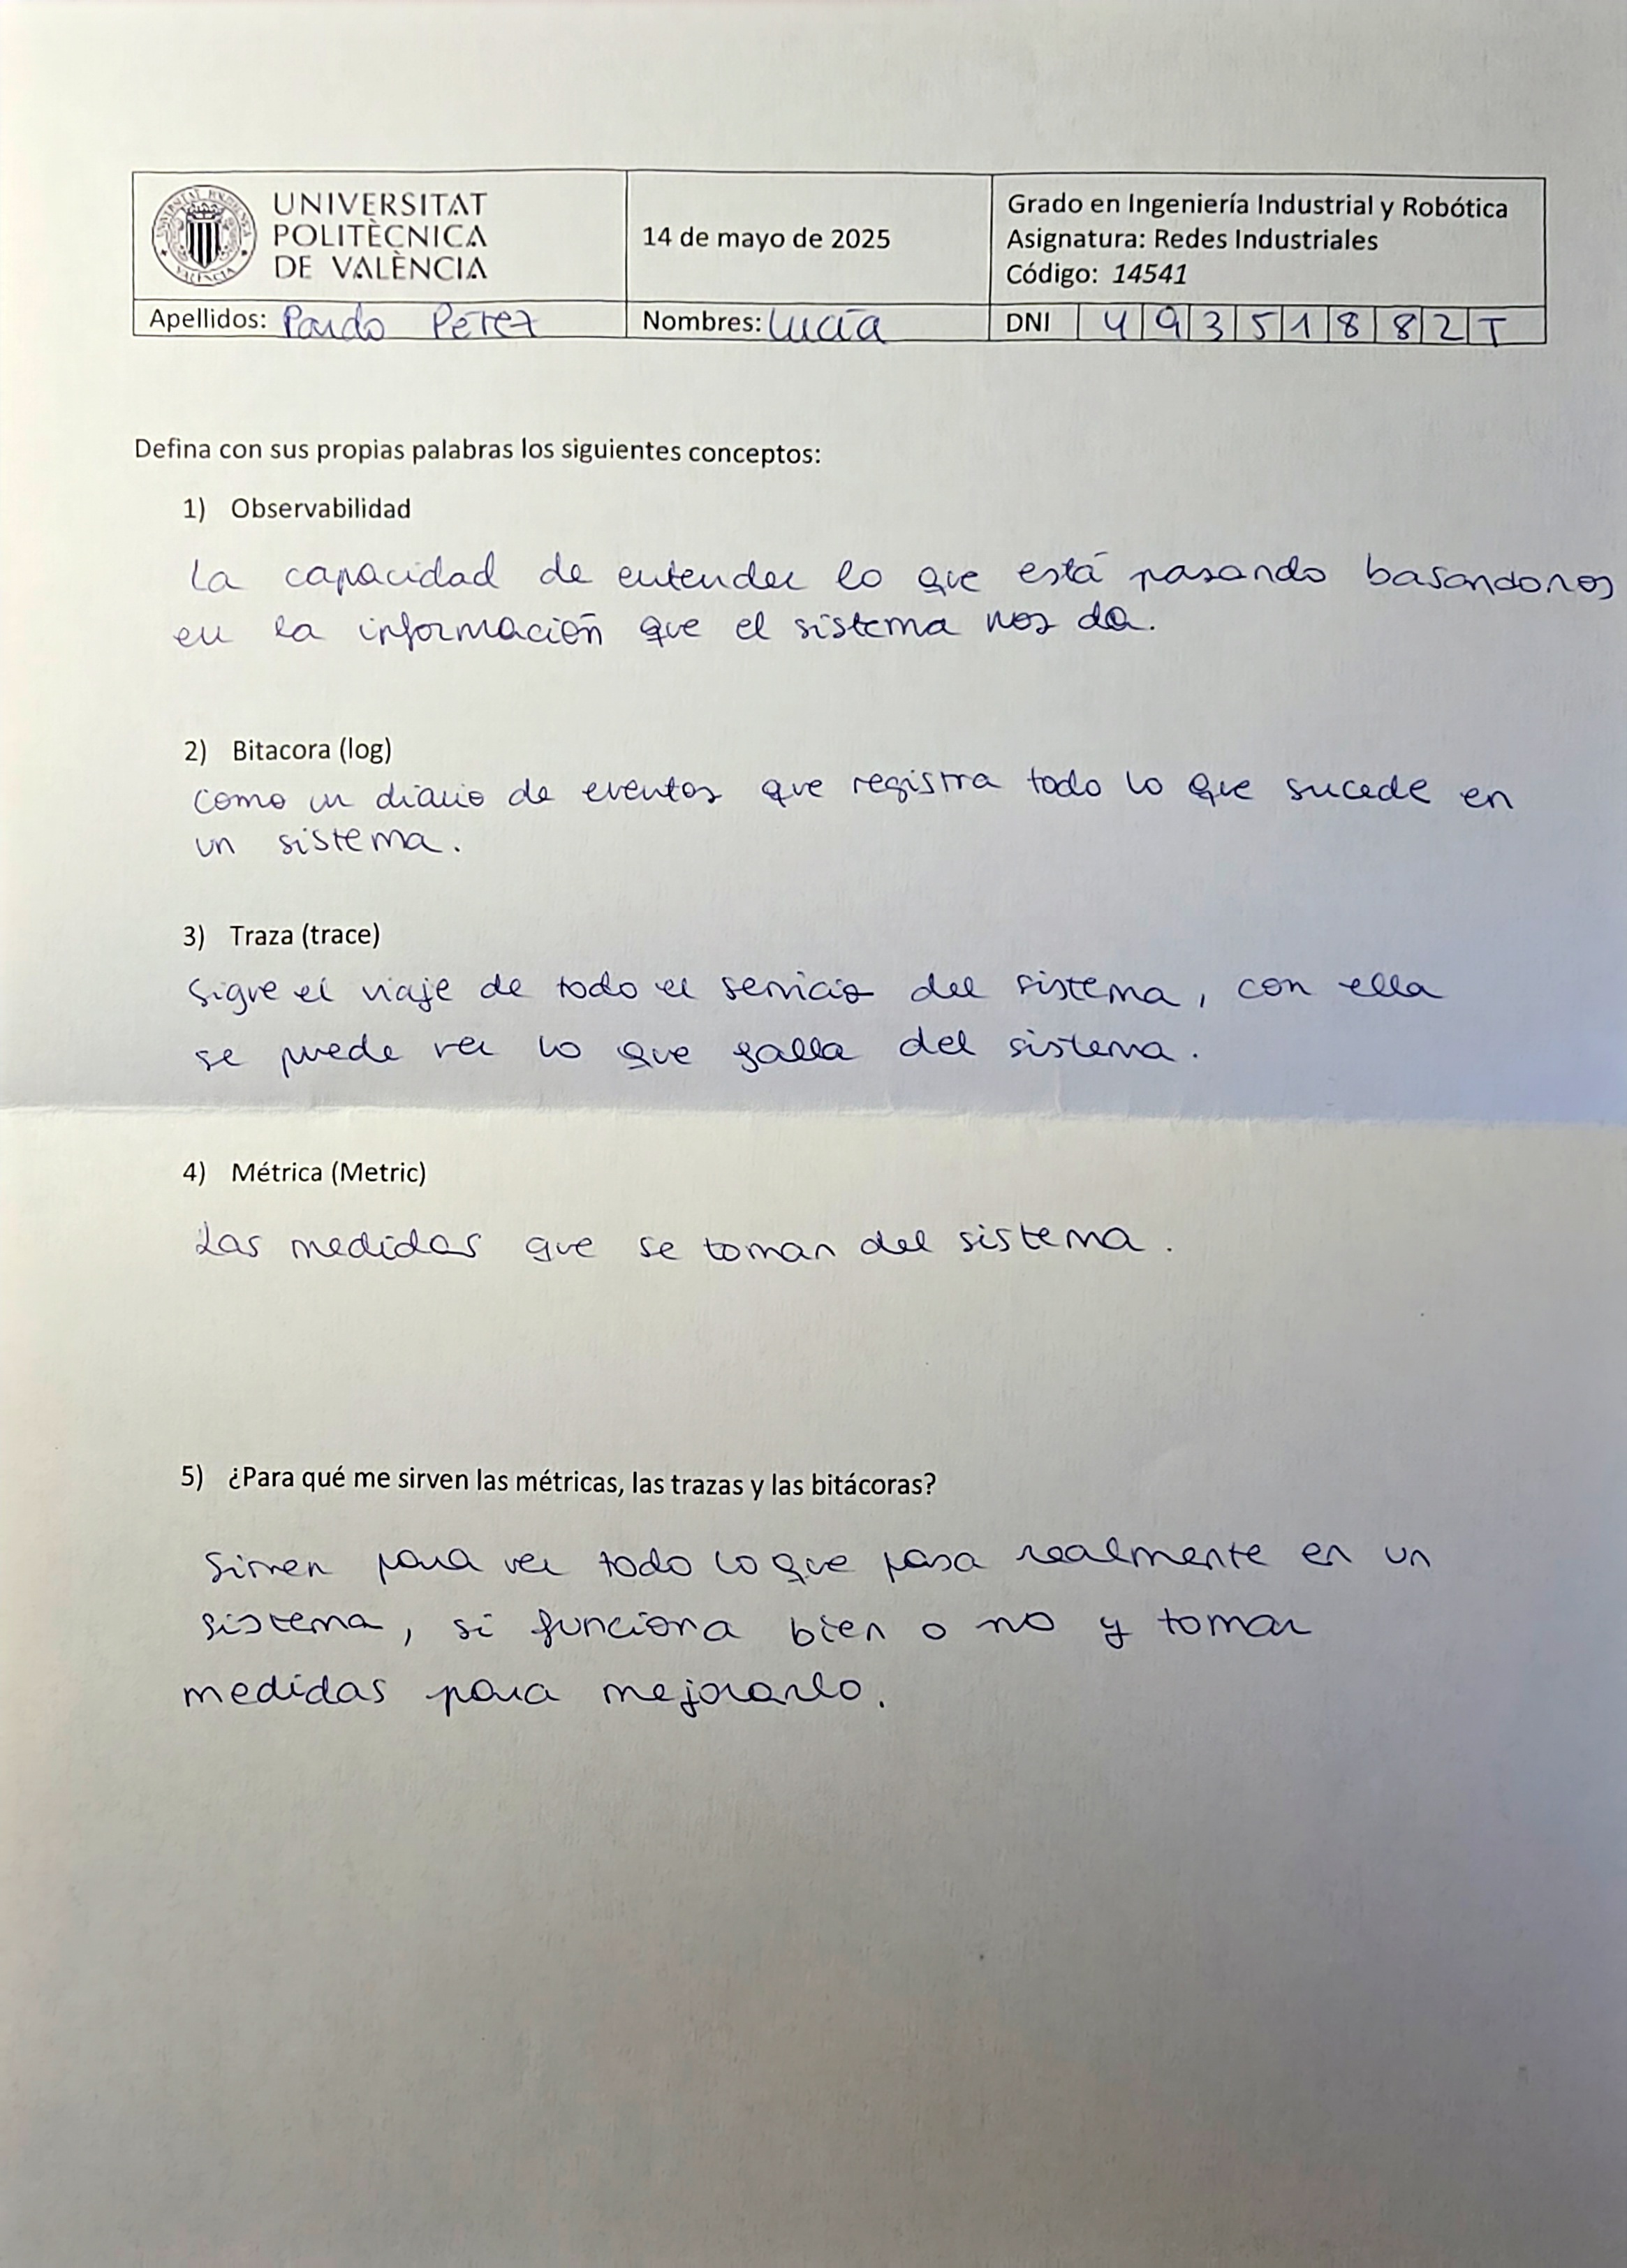 UNIVERSITAT
POLITÈCNICA
DE VALÈNCIA
14 de mayo de 2025
Grado en Ingeniería Industrial y Robótica
Asignatura: Redes Industriales
Código: 14541
Apellidos: Pardo Pérez Nombres: Lucía DNI 49351882T
Defina con sus propias palabras los siguientes conceptos:
1) Observabilidad
La capacidad de entender lo que está pasando basandonos
en la información que el sistema nos da.
2) Bitacora (log)
Como un diario de eventos que registra todo lo que sucede en
un sistema.
3) Traza (trace)
Sigue el viaje de todo el servicio del sistema, con ella
se puede ver lo que falla del sistema.
4) Métrica (Metric)
Las medidas que se toman del sistema.
5) ¿Para qué me sirven las métricas, las trazas y las bitácoras?
Sirven para ver todo lo que pasa realmente en un
sistema, si funciona bien o no y tomar
medidas para mejorarlo.